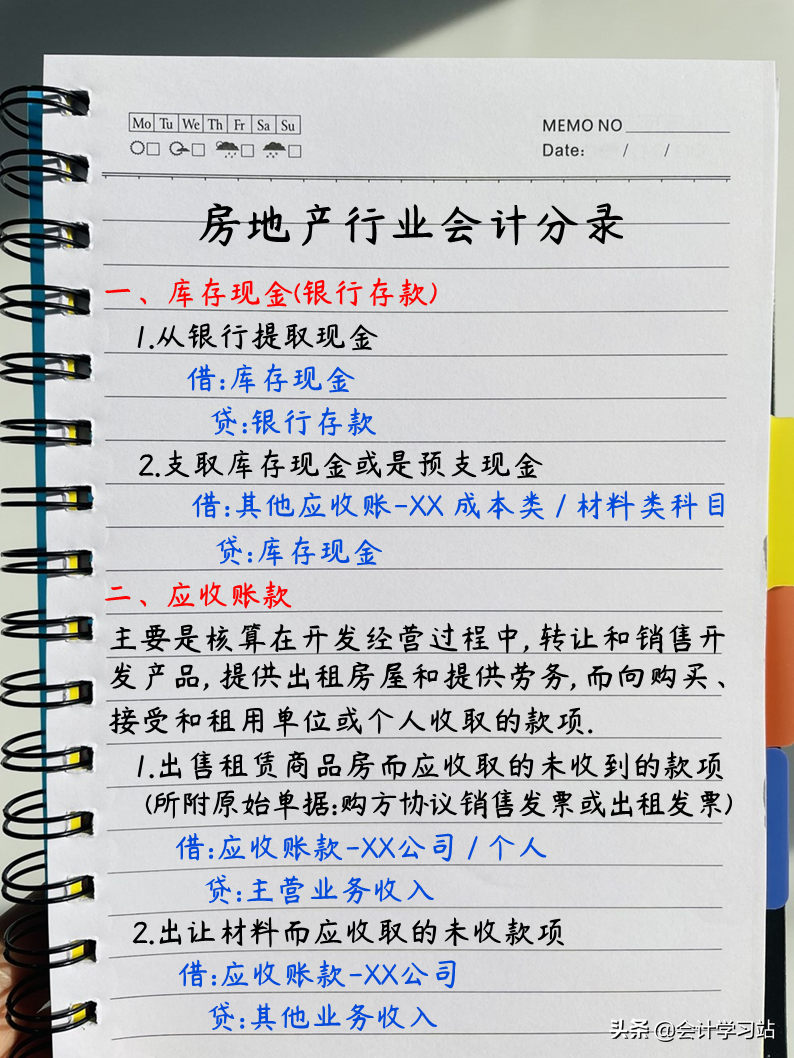 Mo Tu We Th Fr Sa Su
MEMO NO
Date: / /
房地产行业会计分录
一、库存现金(银行存款)
1.从银行提取现金
借:库存现金
贷:银行存款
2.支取库存现金或是预支现金
借:其他应收账-XX 成本类/材料类科目
贷:库存现金
二、应收账款
主要是核算在开发经营过程中,转让和销售开
发产品,提供出租房屋和提供劳务,而向购买、
接受和租用单位或个人收取的款项.
1.出售租赁商品房而应收取的未收到的款项
(所附原始单据:购方协议销售发票或出租发票)
借:应收账款-XX公司/个人
贷:主营业务收入
2.出让材料而应收取的未收款项
借:应收账款-XX公司
贷:其他业务收入
头条 @会计学习站